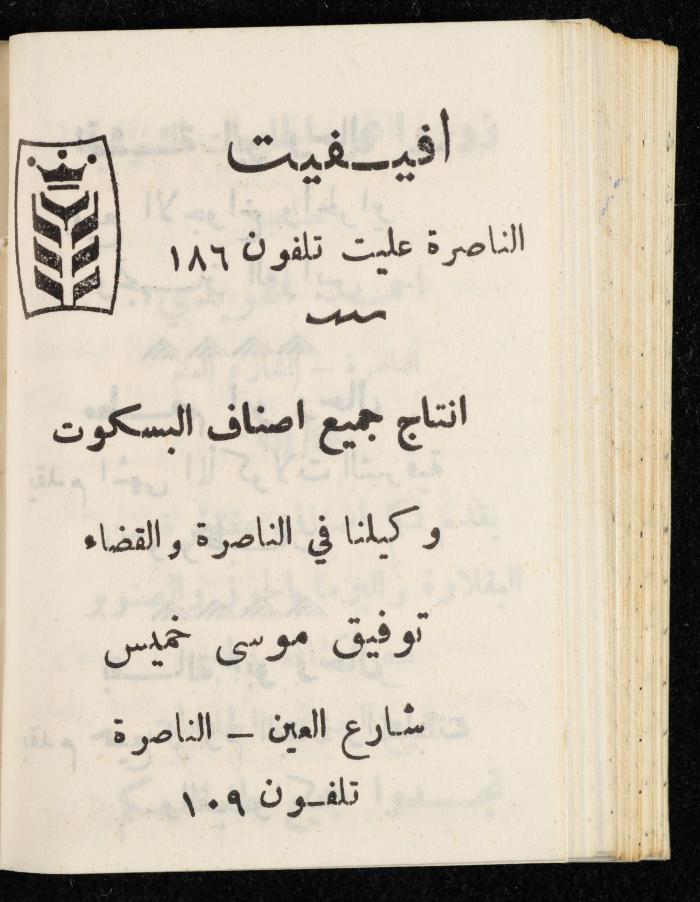 افيـفيت
الناصرة عليت تلفون ١٨٦
انتاج جميع اصناف البسكوت
وكيلنا في الناصرة والقضاء
توفيق موسى خميس
شارع العين ـ الناصرة
تلفـون ١٠٩